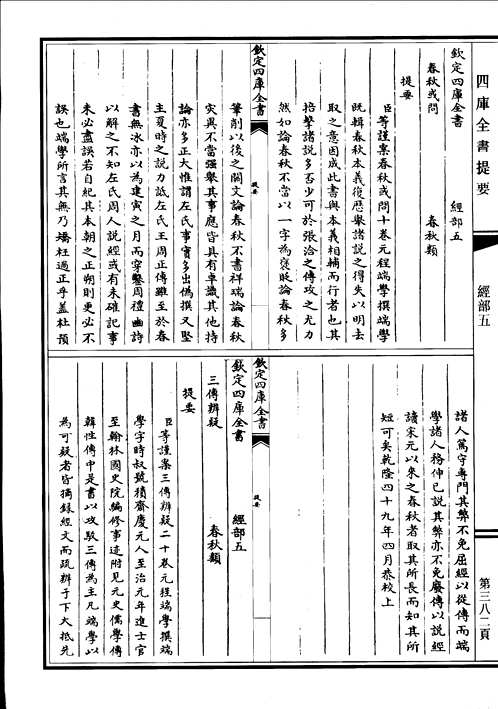 四庫全書提要
經部五
第三八二頁
欽定四庫全書　經部五
春秋或問　春秋類
提要
臣等謹案春秋或問十卷元程端學撰端學
既輯春秋本義復歷舉諸說之得失以明去
取之意因成此書與本義相輔而行者也其
掊擊諸說多否少可於張洽之傳攻之尤力
然如論春秋不當以一字為褒貶論春秋多
欽定四庫全書　提要
筆削以後之闕文論春秋不書祥瑞論春秋
災異不當強舉其事應皆具有卓識其他持
論亦多正大惟謂左氏事實多出偽撰又堅
主夏時之說力詆左氏王周正傳雖至於春
書無冰亦以為建寅之月而穿鑿周禮豳詩
以解之不知左氏周人說經或有未確記事
未必盡誤若自紀其本朝之正朔則更必不
誤也端學所言其無乃矯枉過正乎蓋杜預
諸人篤守專門其弊不免屈經以從傳而端
學諸人務伸已說其弊亦不免廢傳以說經
讀宋元以來之春秋者取其所長而知其所
短可矣乾隆四十九年四月恭校上
欽定四庫全書　提要
欽定四庫全書　經部五
三傳辨疑　春秋類
提要
臣等謹案三傳辨疑二十卷元程端學撰端
學字時叔號積齋慶元人至治元年進士官
至翰林國史院編修事迹附見元史儒學傳
韓性傳中是書以攻駁三傳為主凡端學以
為可疑者皆摘錄經文而疏辨于下大抵先